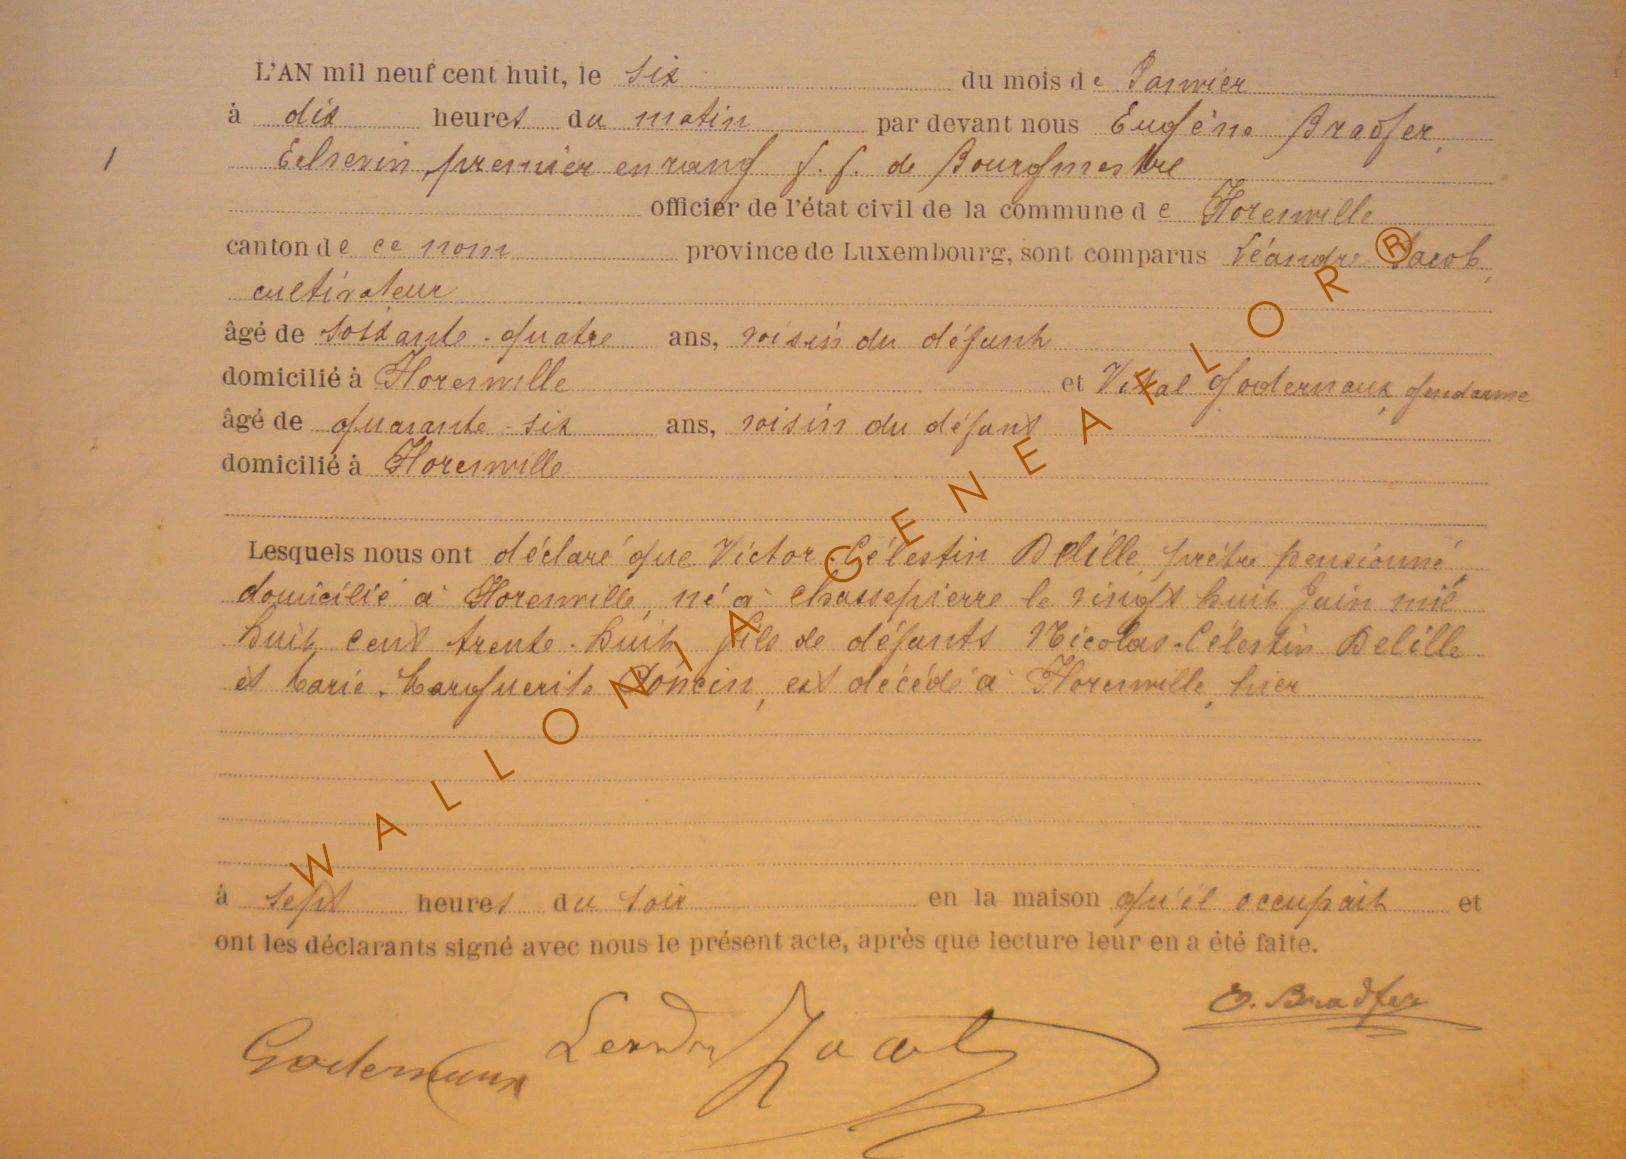 L'AN mil neuf cent huit, le six du mois de Janvier
à dix heures du matin par devant nous Eugène Bradfer,
1 Echevin, premier en rang f. f. de Bourgmestre
officier de l'état civil de la commune de Florenville
canton de ce nom province de Luxembourg, sont comparus Léandre Jacob,
cultivateur
âgé de soixante-quatre ans, voisin du défunt
domicilié à Florenville et Vital Godernaux, gendarme
âgé de quarante-six ans, voisin du défunt
domicilié à Florenville
Lesquels nous ont déclaré que Victor-Célestin Delille, prêtre pensionné
domicilié à Florenville, né à Chassepierre le vingt huit Juin mil
huit cent trente-huit, fils de défunts Nicolas-Célestin Delille
et Marie-Marguerite Poncin, est décédé à Florenville, hier
à sept heures du soir en la maison qu'il occupait et
ont les déclarants signé avec nous le présent acte, après que lecture leur en a été faite.
E. Bradfer
Godernaux Leandre Jacob
WALLONIA GENEAFLOR ®